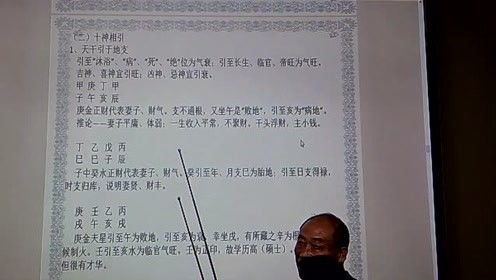 (二)十神相引
1、天干引于地支
引至“沐浴”、“病”、“死”、“绝”位为气衰；引至长生、临官、帝旺为气旺。
吉神、喜神宜引旺；凶神、忌神宜引衰。
甲 庚 丁 甲
子 午 亥 辰
庚金正财代表妻子、财气。支不通根，又坐午是“败地”，引至亥为“病地”。
推论——妻子平庸、体弱；一生收入平常，不聚财。干头浮财，主小钱。
丁 乙 戊 丙
巳 巳 子 辰
子中癸水正财代表妻子、财气。癸引至年、月支巳为胎地；引至日支得禄，
时支归库，说明妻贤、财丰。
庚 壬 乙 丙
戌 午 亥 戌
庚金天星引至午为败地，引至亥为病，幸坐戌，有所藏之辛为根
候制火，壬引至亥水为临官气旺。壬为正印，故学历高（硕士）。
但很有才华。